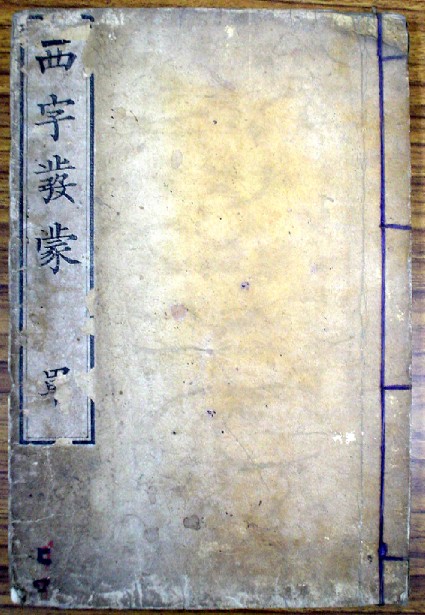 西字發蒙
四